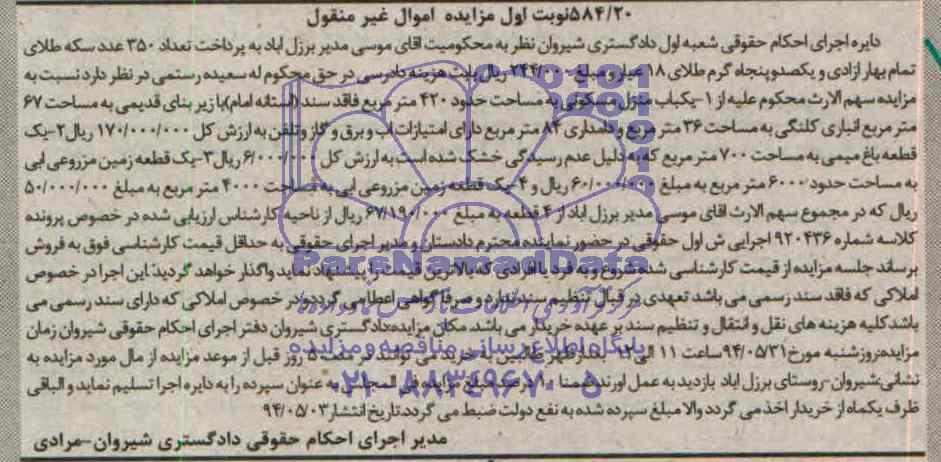 ۵۸۴/۲۰نوبت اول مزایده اموال غیر منقول
دایره اجرای احکام حقوقی شعبه اول دادگستری شیروان نظر به محکومیت اقای موسی مدیر برزل اباد به پرداخت تعداد ۳۵۰ عدد سکه طلای
تمام بهار ازادی و یکصدوپنجاه گرم طلای ۱۸ عیار و مبلغ ریال بابت هزینه دادرسی در حق محکوم له سعیده رستمی در نظر دارد نسبت به
مزایده سهم الارث محکوم علیه از ۱-یکباب منزل مسکونی به مساحت حدود ۴۲۰ متر مربع فاقد سند (استانه امام)با زیر بنای قدیمی به مساحت ۶۷
متر مربع انباری کلنگی به مساحت ۳۶ متر مربع و دامداری ۸۴ متر مربع دارای امتیازات اب و برق و گاز وتلفن به ارزش کل ۱۷۰/۰۰۰/۰۰۰ ریال۲-یک
قطعه باغ میمی به مساحت ۷۰۰ متر مربع که به دلیل عدم رسیدگی خشک شده است به ارزش کل ۶/۰۰۰/۰۰۰ ریال۳-یک قطعه زمین مزروعی ابی
به مساحت حدود ۶۰۰۰ متر مربع به مبلغ ۶۰/۰۰۰/۰۰۰ ریال و ۴-یک قطعه زمین مزروعی ابی به مساحت ۴۰۰۰ متر مربع به مبلغ ۵۰/۰۰۰/۰۰۰
ریال که در مجموع سهم الارث اقای موسی مدیر برزل اباد از ۴ قطعه به مبلغ ۶۷/۱۹۰/۰۰۰ ریال از ناحیه کارشناس ارزیابی شده در خصوص پرونده
کلاسه شماره ۹۲۰۴۳۶ اجرایی ش اول حقوقی در حضور نماینده محترم دادستان و مدیر اجرای حقوقی به حداقل قیمت کارشناسی فوق به فروش
برساند جلسه مزایده از قیمت کارشناسی شده شروع و به فرد یا افرادی که بالاترین قیمت را پیشنهاد نماید واگذار خواهد گردید:این اجرا در خصوص
املاکی که فاقد سند رسمی می باشد تعهدی در قبال تنظیم سند ندارد و صرفا گواهی اعطا می گرددودر خصوص املاکی که دارای سند رسمی می
باشدکلیه هزینه های نقل و انتقال و تنظیم سند بر عهده خریدار می باشد.مکان مزایده:دادگستری شیروان دفتر اجرای احکام حقوقی شیروان زمان
مزایده:روزشنبه مورخ۹۴/۰۵/۳۱ساعت ۱۱ الی ۱۲ طالبین به خرید می توانند در مدت ۵ روز قبل از موعد مزایده از مال مورد مزایده به
نشانی:شیروان-روستای برزل اباد بازدید به عمل اورند.ضمنا ۱۰ درصد مبلغ مزایده فی المجلس به عنوان سپرده را به دایره اجرا تسلیم نماید و الباقی
ظرف یکماه از خریدار اخذ می گردد والا مبلغ سپرده شده به نفع دولت ضبط می گردد.تاریخ انتشار ۹۴/۰۵/۰۳
مدیر اجرای احکام حقوقی دادگستری شیروان-مرادی
ParsNamadData
پایگاه اطلاع رسانی مناقصه و مزایده
۰۲۱-۸۸۳۴۹۶۷۰-۵